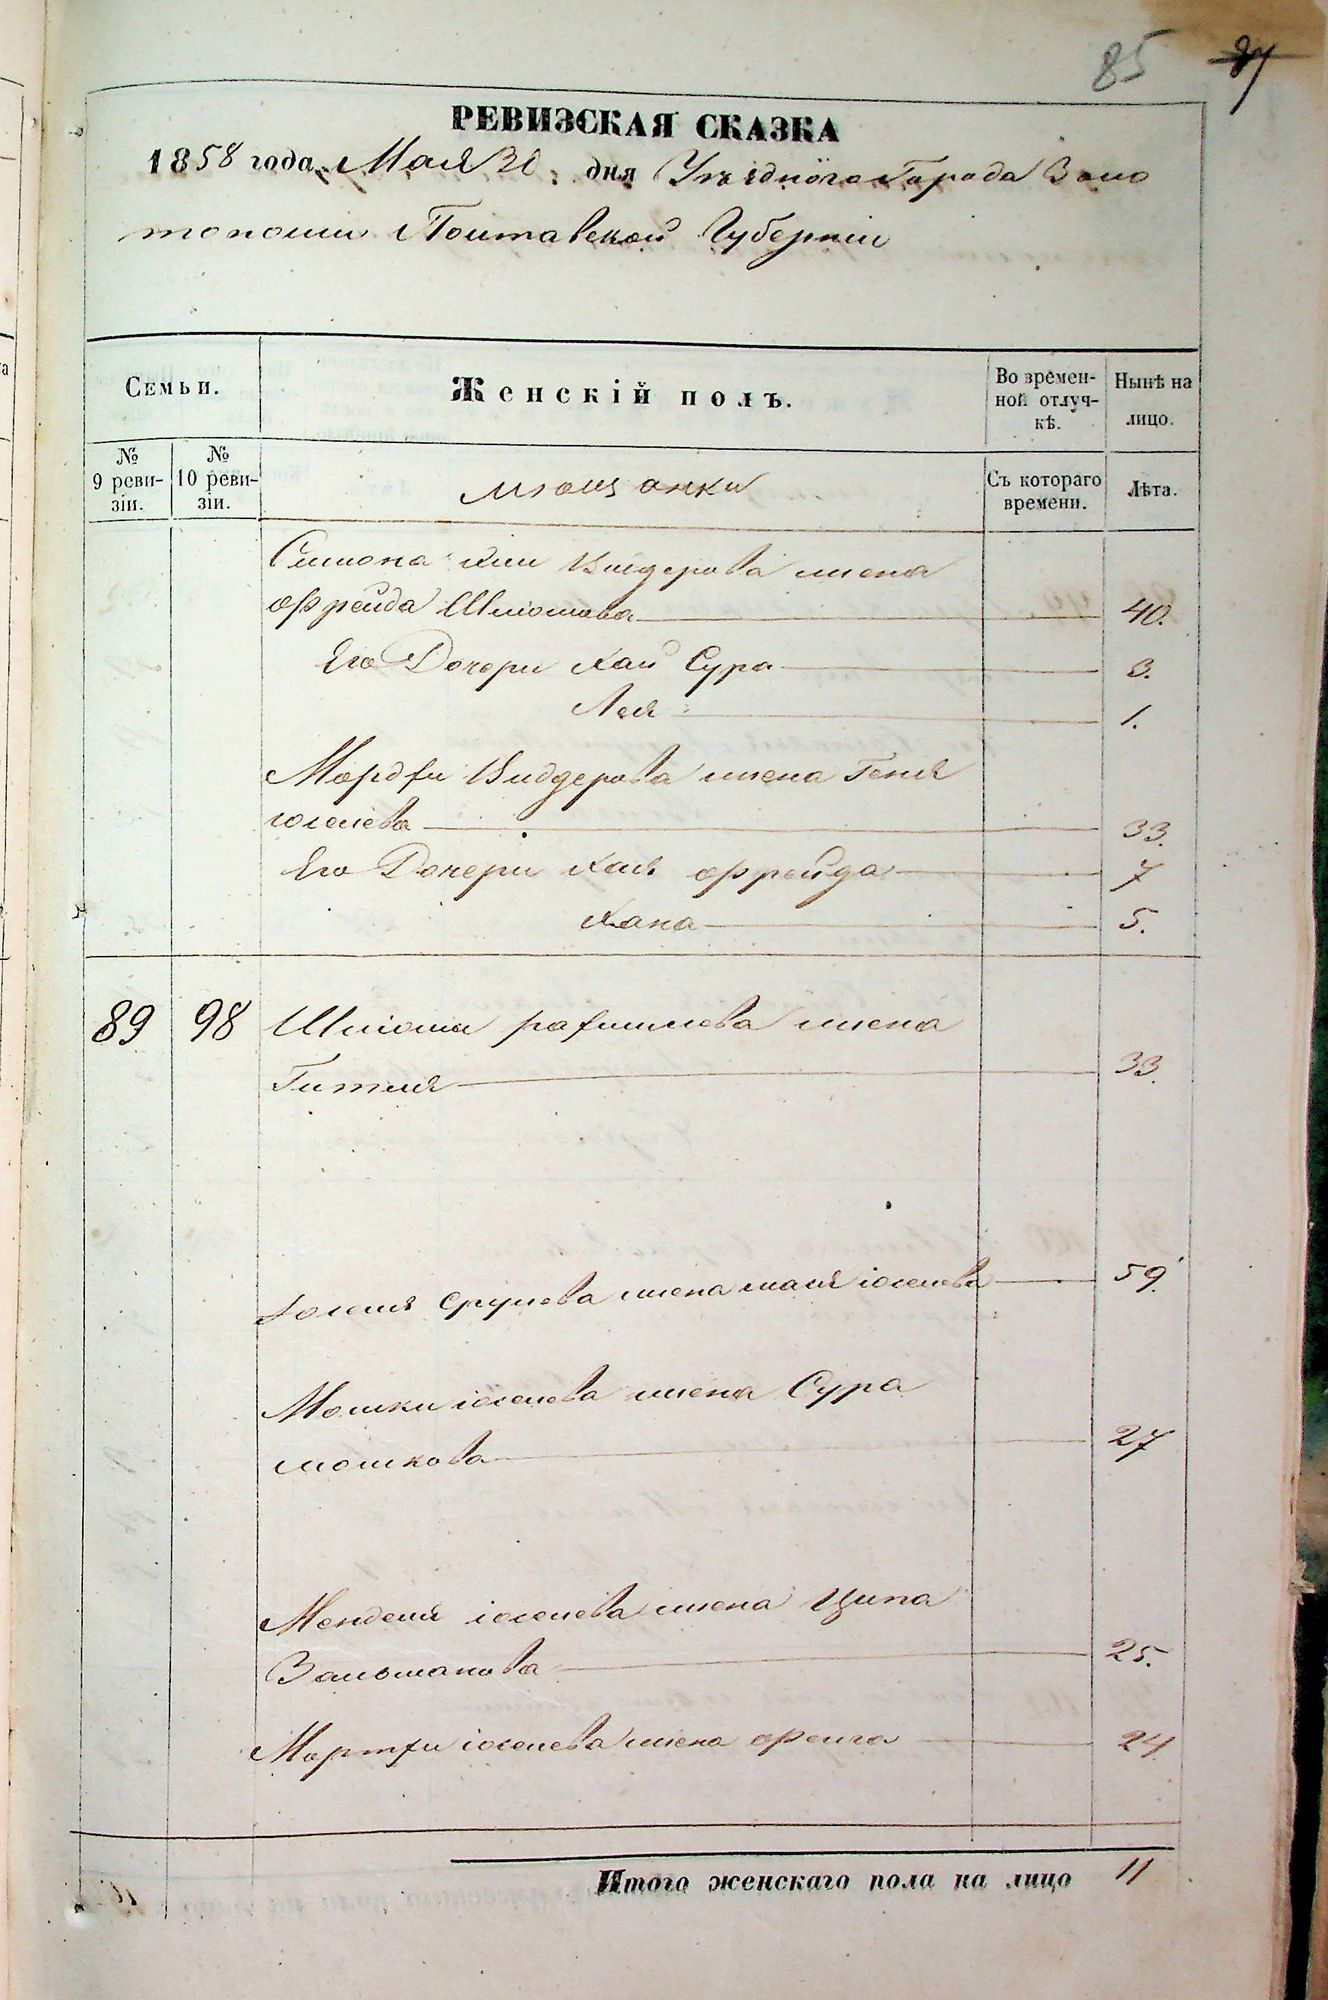 85 87
РЕВИЗСКАЯ СКАЗКА
1858 года Мая 31 дня Уѣзднаго Города Золо
тоноши Полтавской Губерніи
Семьи.
Женскій полъ.
Во времен-
ной отлуч-
кѣ.
Нынѣ на
лицо.
№
9 реви-
зіи.
№
10 реви-
зіи.
мѣщанки
Съ котораго
времени.
Лѣта.
Симона Вигдорова жена
Фрейда Шліомова 40.
Его Дочери Хая Сура 3.
Лея 1.
Мордхи Вигдорова жена Геня
іоселева 33.
Его Дочери Хая Фрейда 7
Хана 5.
89 98 Шліомы жена
Гитля 33.
Іоселя Срулева жена іоселева 59.
Мошки іоселева жена Сура
мошкова 27
Менделя іоселева жена Ципа
Зальманова 25.
Мортхи іоселева жена 24
Итого женскаго пола на лицо 11